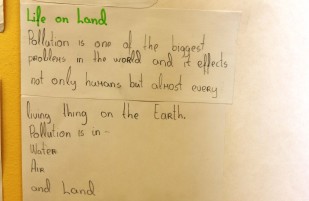 Life on Land
Pollution is one of the biggest
problems in the world and it effects
not only humans but almost every
living thing on the Earth.
Pollution is in -
Water
Air
and Land